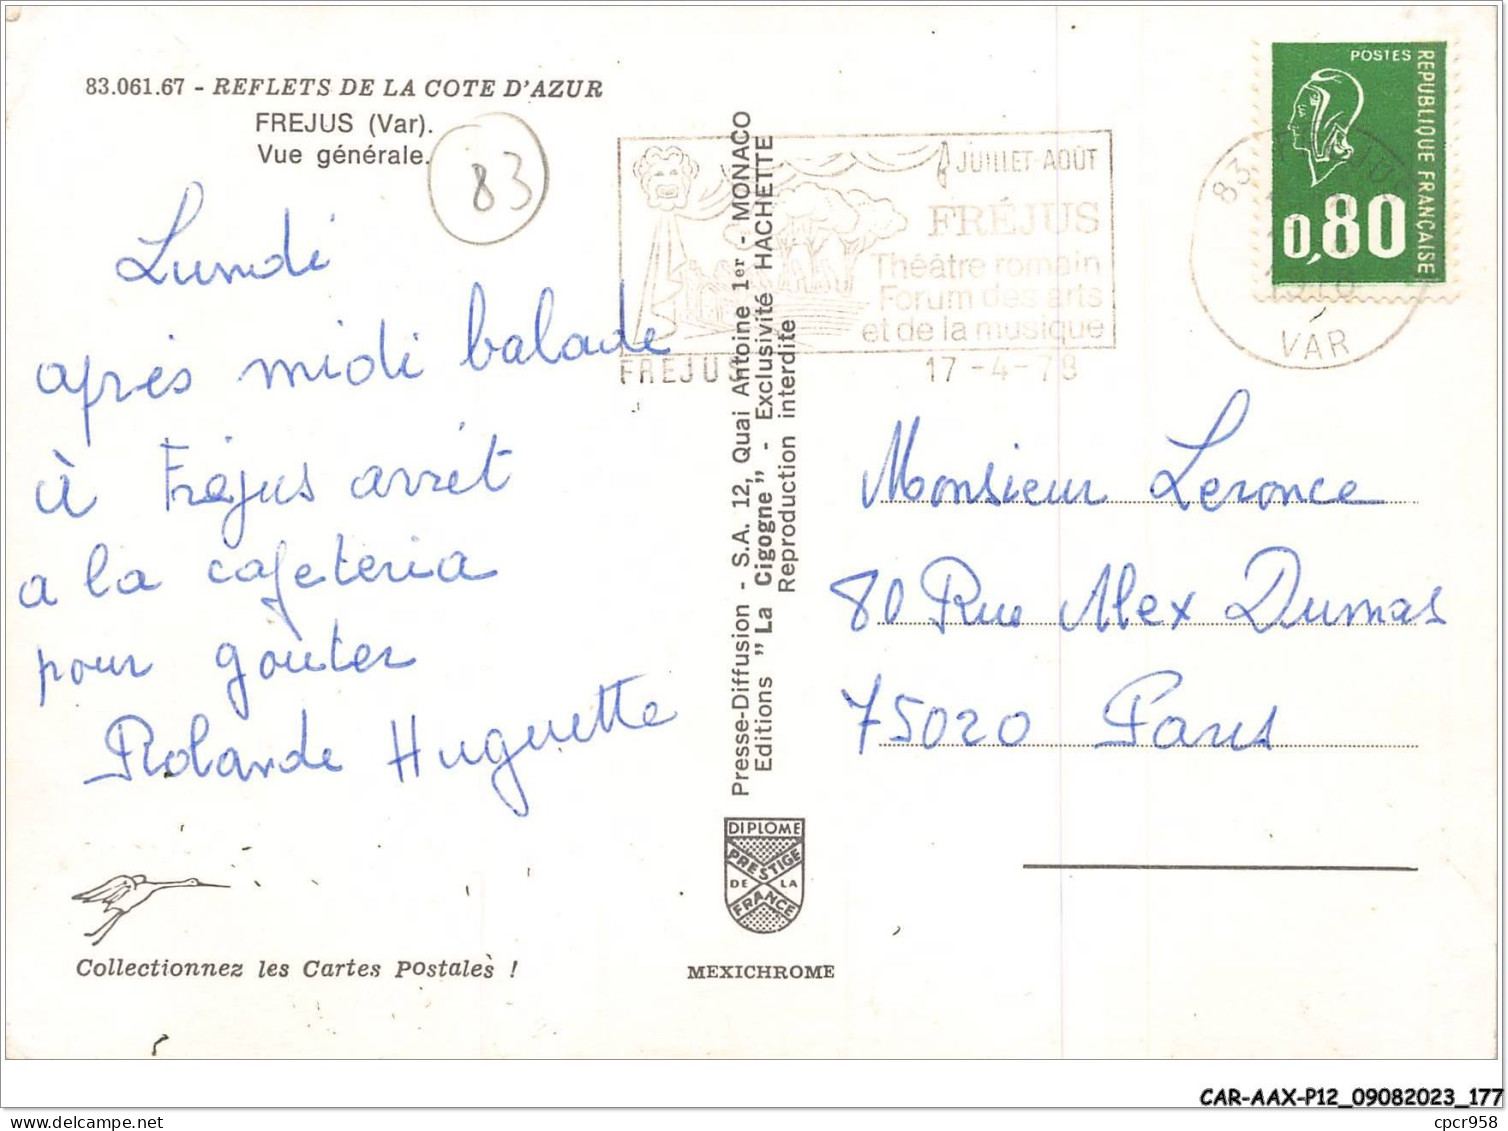 83.061.67 - REFLETS DE LA COTE D'AZUR
FREJUS (Var).
Vue générale.
83
Lundi
après midi balade
à Fréjus arrêt
a la cafeteria
pour goûter
Rolande Huguette
Collectionnez les Cartes Postales !
Presse-Diffusion - S.A. 12, Quai Antoine 1er - MONACO
Editions "La Cigogne" - Exclusivité HACHETTE
Reproduction interdite
DIPLÔME
PRESTIGE
DE LA
FRANCE
MEXICHROME
JUILLET-AOÛT
FRÉJUS
Théâtre romain
Forum des arts
et de la musique
FREJUS
17-4-78
POSTES
REPUBLIQUE FRANÇAISE
0,80
83
1978
VAR
Monsieur Leronce
80 Rue Alex Dumas
75020 Paris
CAR-AAX-P12_09082023_177
delcampe.net
cpcr958